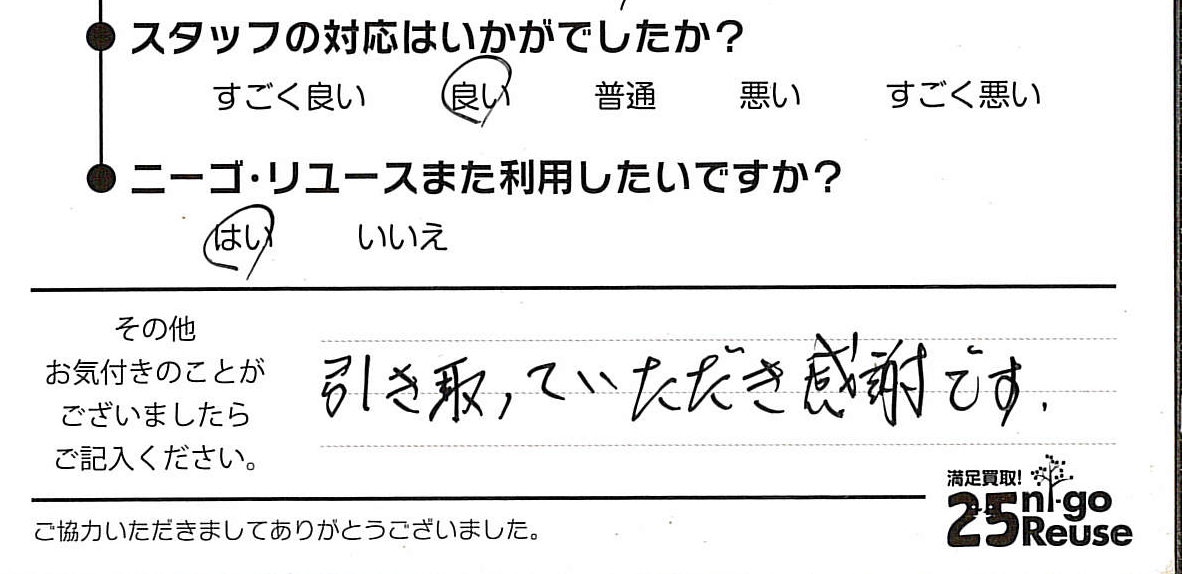 スタッフの対応はいかがでしたか?
すごく良い 良い 普通 悪い すごく悪い
ニーゴ・リユースまた利用したいですか?
はい いいえ
その他
お気付きのことが
ございましたら
ご記入ください。
引き取っていただき感謝です.
満足買取!
25 ni-go
Reuse
ご協力いただきましてありがとうございました。